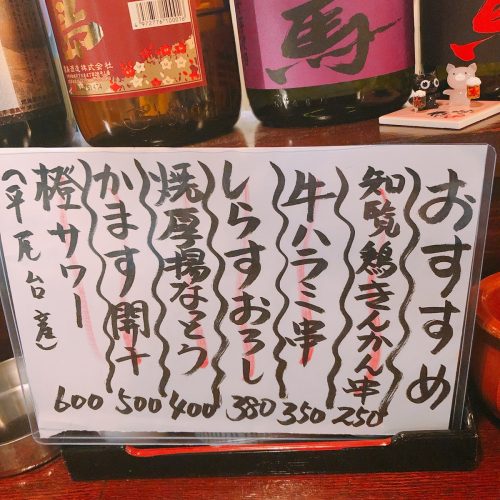 おすすめ
知覧鶏きんかん串 250
牛ハラミ串 350
しらすおろし 380
焼厚揚なっとう 400
かます開干 500
橙サワー 600
(平尾台産)
馬
4972776100016